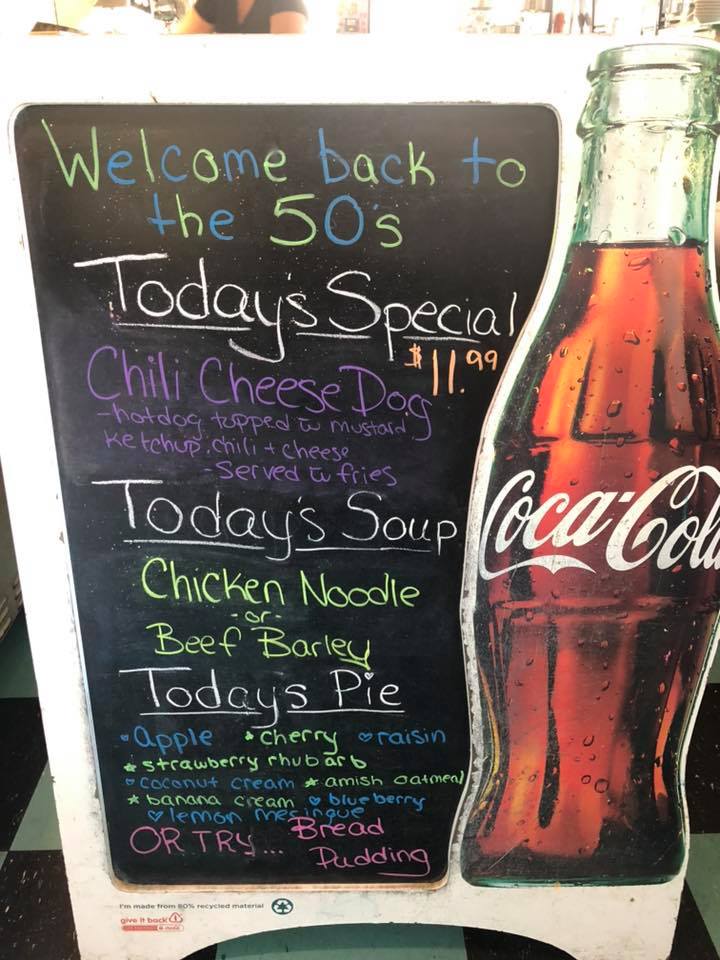 Welcome back to
the 50's
Today's Special
$11.99
Chili Cheese Dog
-hotdog topped w mustard
ketchup, chili + cheese
-Served w fries
Today's Soup
Chicken Noodle
-or-
Beef Barley
Today's Pie
apple cherry raisin
strawberry rhubarb
coconut cream amish oatmeal
banana cream blueberry
lemon meringue
OR TRY... Bread
Pudding
Coca-Cola
I'm made from 80% recycled material
give it back